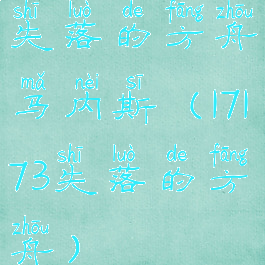 shī luò de fāng zhōu
失落的方舟
mǎ nèi sī
马内斯(171
shī luò de fāng
73失落的方
zhōu
舟)